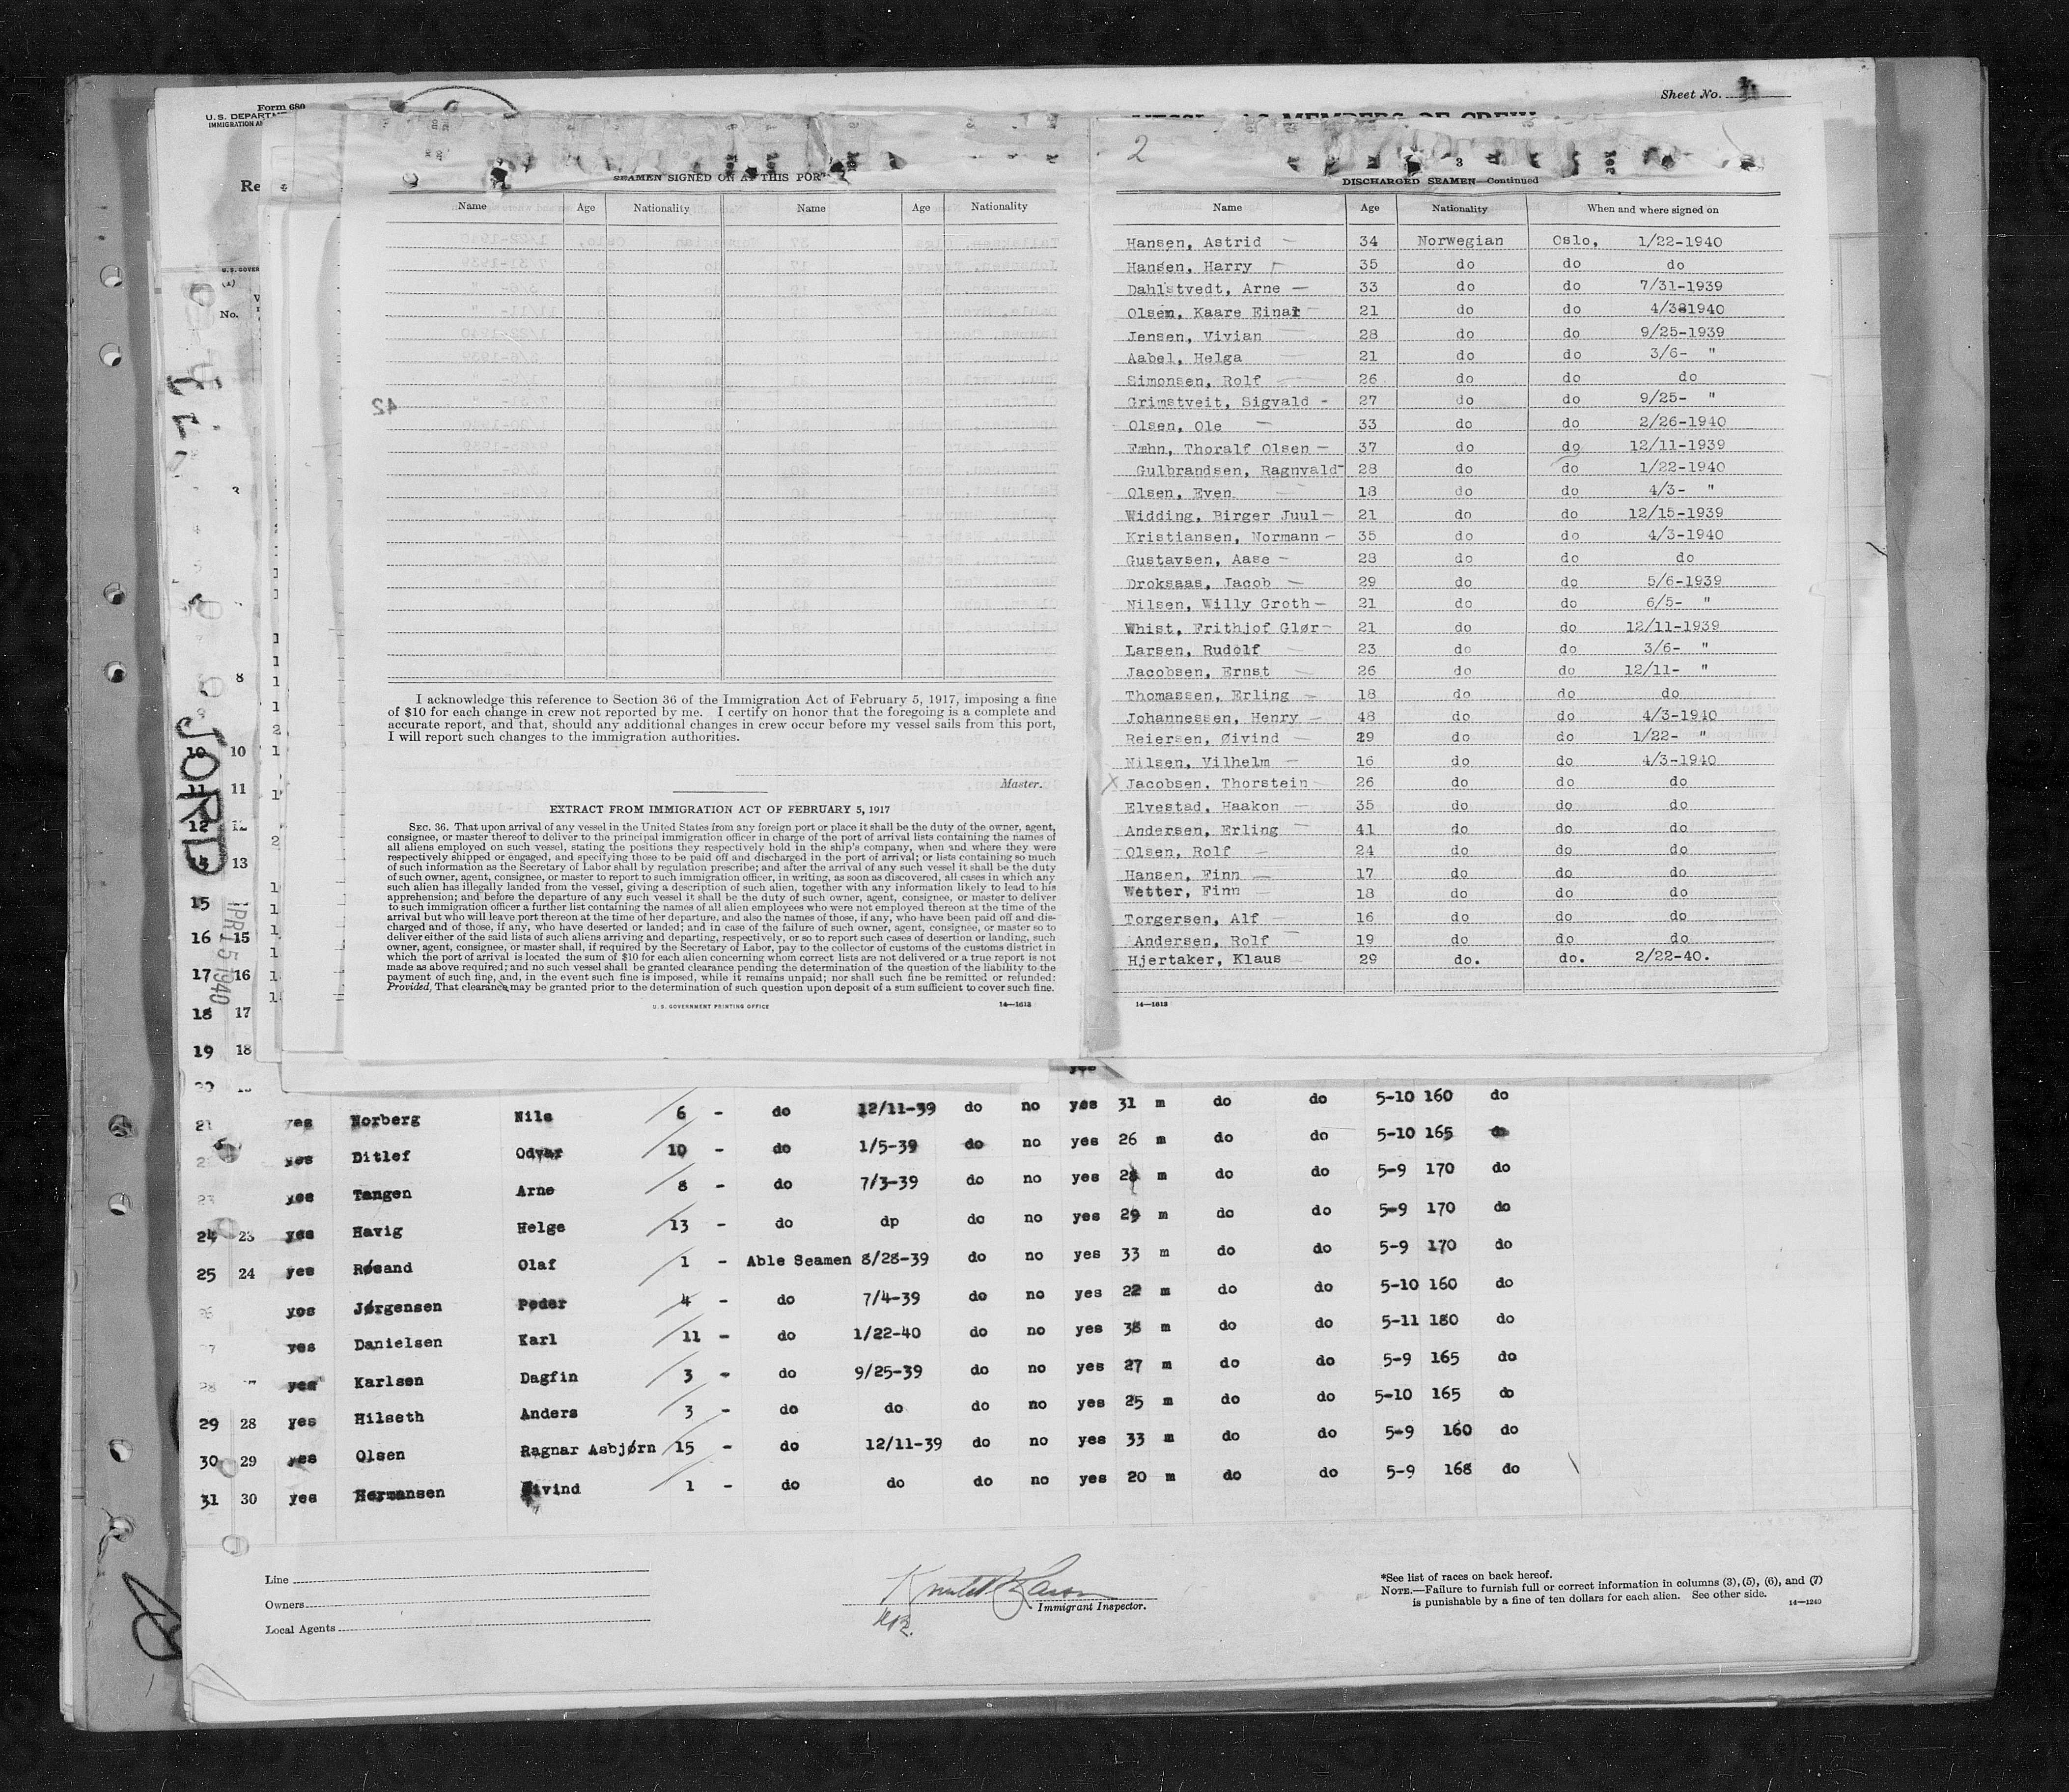 Form 680
U.S. DEPARTM
IMMIGRATION AN
Sheet No.
Re
No.
SEAMEN SIGNED ON AT THIS PORT
Name Age Nationality Name Age Nationality
42
I acknowledge this reference to Section 36 of the Immigration Act of February 5, 1917, imposing a fine
of $10 for each change in crew not reported by me. I certify on honor that the foregoing is a complete and
accurate report, and that, should any additional changes in crew occur before my vessel sails from this port,
I will report such changes to the immigration authorities.
Master.
EXTRACT FROM IMMIGRATION ACT OF FEBRUARY 5, 1917
SEC. 36. That upon arrival of any vessel in the United States from any foreign port or place it shall be the duty of the owner, agent,
consignee, or master thereof to deliver to the principal immigration officer in charge of the port of arrival lists containing the names of
all aliens employed on such vessel, stating the positions they respectively hold in the ship's company, when and where they were
respectively shipped or engaged, and specifying those to be paid off and discharged in the port of arrival; or lists containing so much
of such information as the Secretary of Labor shall by regulation prescribe; and after the arrival of any such vessel it shall be the duty
of such owner, agent, consignee, or master to report to such immigration officer, in writing, as soon as discovered, all cases in which any
such alien has illegally landed from the vessel, giving a description of such alien, together with any information likely to lead to his
apprehension; and before the departure of any such vessel it shall be the duty of such owner, agent, consignee, or master to deliver
to such immigration officer a further list containing the names of all alien employees who were not employed thereon at the time of the
arrival but who will leave port thereon at the time of her departure, and also the names of those, if any, who have been paid off and dis-
charged and of those, if any, who have deserted or landed; and in case of the failure of such owner, agent, consignee, or master so to
deliver either of the said lists of such aliens arriving and departing, respectively, or so to report such cases of desertion or landing, such
owner, agent, consignee, or master shall, if required by the Secretary of Labor, pay to the collector of customs of the customs district in
which the port of arrival is located the sum of $10 for each alien concerning whom correct lists are not delivered or a true report is not
made as above required; and no such vessel shall be granted clearance pending the determination of the question of the liability to the
payment of such fine, and, in the event such fine is imposed, while it remains unpaid; nor shall such fine be remitted or refunded:
Provided, That clearance may be granted prior to the determination of such question upon deposit of a sum sufficient to cover such fine.
U. S. GOVERNMENT PRINTING OFFICE 14—1613
2
3
DISCHARGED SEAMEN—Continued
Name Age Nationality When and where signed on
Hansen, Astrid — 34 Norwegian Oslo, 1/22-1940
Hansen, Harry 35 do do do
Dahlstvedt, Arne — 33 do do 7/31-1939
Olsen, Kaare Einar 21 do do 4/3-1940
Jensen, Vivian 28 do do 9/25-1939
Aabel, Helga 21 do do 3/6- "
Simonsen, Rolf 26 do do do
Grimstveit, Sigvald - 27 do do 9/25- "
Olsen, Ole — 33 do do 2/26-1940
Fæhn, Thoralf Olsen — 37 do do 12/11-1939
Gulbrandsen, Ragnvald 28 do do 1/22-1940
Olsen, Even 18 do do 4/3- "
Widding, Birger Juul — 21 do do 12/15-1939
Kristiansen, Normann — 35 do do 4/3-1940
Gustavsen, Aase — 28 do do do
Droksaas, Jacob — 29 do do 5/6-1939
Nilsen, Willy Groth — 21 do do 6/5- "
Whist, Frithjof Glør — 21 do do 12/11-1939
Larsen, Rudolf 23 do do 3/6- "
Jacobsen, Ernst — 26 do do 12/11- "
Thomassen, Erling — 18 do do do
Johannessen, Henry — 48 do do 4/3-1940
Reiersen, Øivind — 29 do do 1/22- "
Nilsen, Vilhelm — 16 do do 4/3-1940
X Jacobsen, Thorstein 26 do do do
Elvestad, Haakon — 35 do do do
Andersen, Erling — 41 do do do
Olsen, Rolf — 24 do do do
Hansen, Finn — 17 do do do
Wetter, Finn — 18 do do do
Torgersen, Alf — 16 do do do
Andersen, Rolf 19 do do do
Hjertaker, Klaus 29 do. do. 2/22-40.
14—1613
yes
21 yes Norberg Nils 6 - do 12/11-39 do no yes 31 m do do 5-10 160 do
yes Ditlef Odvar 10 - do 1/5-39 do no yes 26 m do do 5-10 165 do
23 yes Tangen Arne 8 - do 7/3-39 do no yes 28 m do do 5-9 170 do
24 23 yes Havig Helge 13 - do dp do no yes 29 m do do 5-9 170 do
25 24 yes Røsand Olaf 1 - Able Seamen 8/28-39 do no yes 33 m do do 5-9 170 do
yes Jørgensen Peder 4 - do 7/4-39 do no yes 22 m do do 5-10 160 do
yes Danielsen Karl 11 - do 1/22-40 do no yes 38 m do do 5-11 180 do
28 yes Karlsen Dagfin 3 - do 9/25-39 do no yes 27 m do do 5-9 165 do
29 28 yes Hilseth Anders 3 - do do do no yes 25 m do do 5-10 165 do
30 29 yes Olsen Ragnar Asbjørn 15 - do 12/11-39 do no yes 33 m do do 5-9 160 do
31 30 yes Hermansen Øivind 1 - do do do no yes 20 m do do 5-9 168 do
Line
Owners
Local Agents
Immigrant Inspector.
*See list of races on back hereof.
NOTE.—Failure to furnish full or correct information in columns (3), (5), (6), and (7)
is punishable by a fine of ten dollars for each alien. See other side. 14—1240
3
8
10 10
11 11
12 12
13
15
16 15
17 16
18 17
19 18
JORD
APR 15 1940